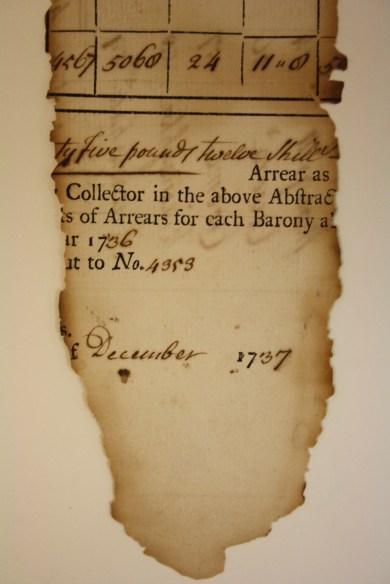 4567 5068 24 11=8 5
ty Five pounds twelve Shill
Arrear as
Collector in the above Abstrac
s of Arrears for each Barony a
ar 1736
ut to No. 4353
s.
f December 1737